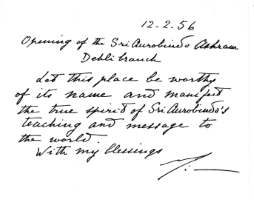 12-2-56
Opening of the Sri Aurobindo Ashram
Delhi branch
Let this place be worthy
of its name and manifest
the true spirit of Sri Aurobindo's
teaching and message to
the world.
With my blessings